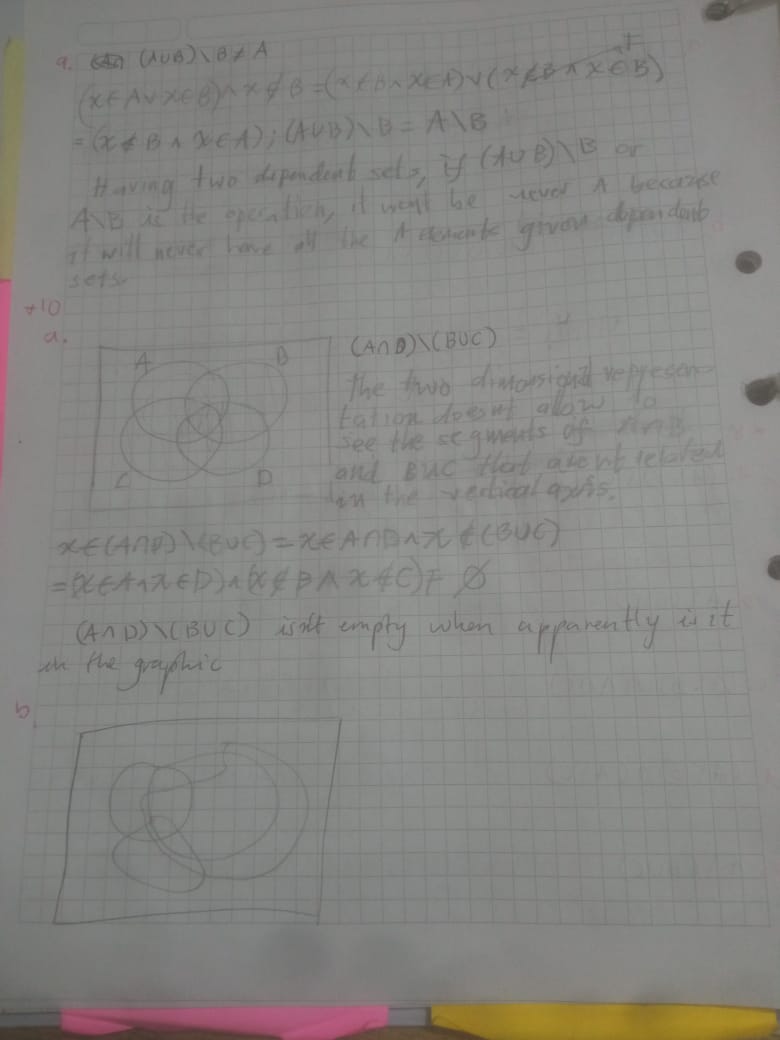 9. (A∪B)\B ≠ A
(x∈A ∨ x∈B) ∧ x∉B = (x∉B ∧ x∈A) ∨ (x∉B ∧ x∈B) F
= (x∉B ∧ x∈A); (A∪B)\B = A\B
Having two dependent sets, if (A∪B)\B or
A\B is the operation, it wont be never A because
it will never have all the A elements given dependent
sets.
*10
a.
A B
C D
(A∩D)\(B∪C)
The two dimensional represen-
tation doesnt allow to
see the segments of
and B∪C that arent related
in the vertical axis.
x∈(A∩D)\(B∪C) = x∈A∩D ∧ x∉(B∪C)
=(x∈A ∧ x∈D) ∧ (x∉B ∧ x∉C) ≠ ∅
(A∩D)\(B∪C) isnt empty when apparently is it
in the graphic
b.